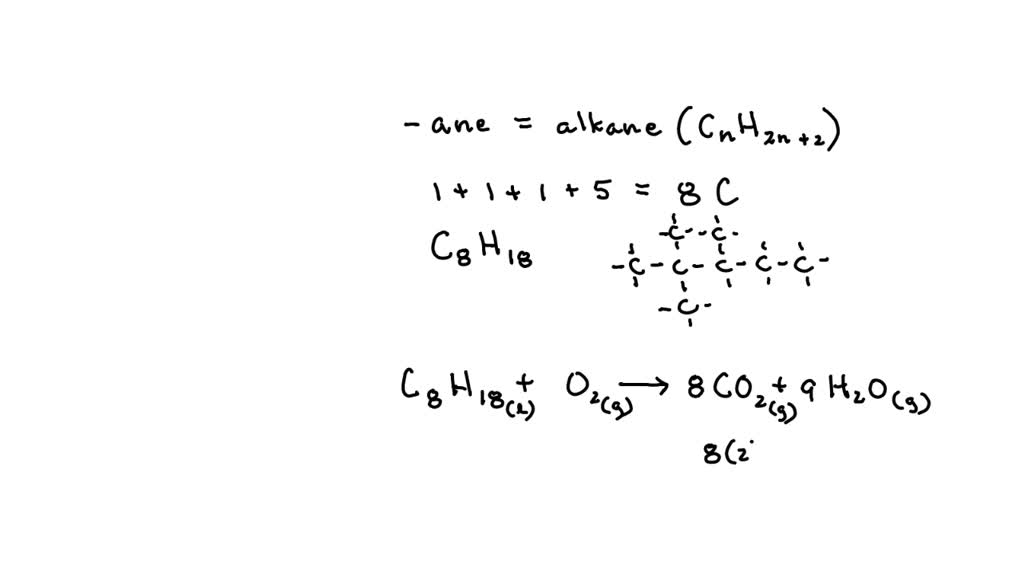 - ane = alkane (CnH2n+2)
1 + 1 + 1 + 5 = 8 C
C8H18
-C--C-
-C-C-C-C-C-
-C-
C8H18(l) + O2(g) → 8CO2(g) + 9H2O(g)
8(2